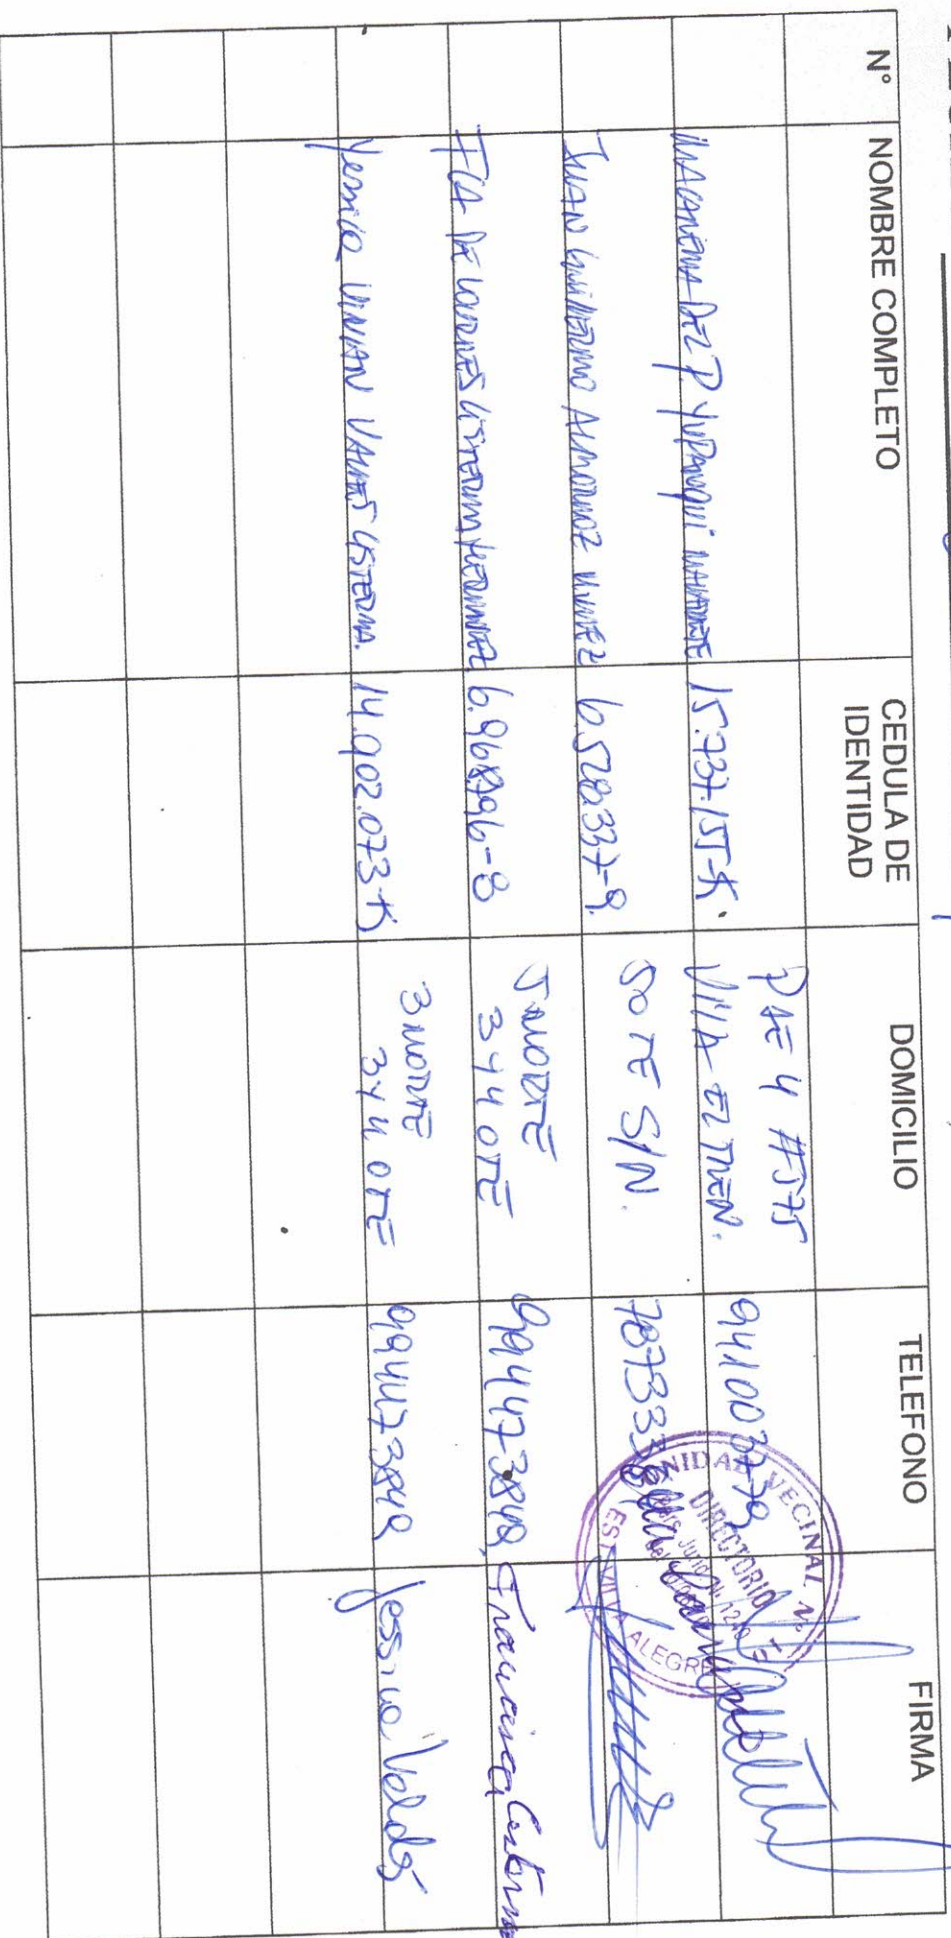 N° NOMBRE COMPLETO CEDULA DE IDENTIDAD DOMICILIO TELEFONO FIRMA
MACARENA DEL P. YUPANQUI 15.737.155-K. PJE 4 #575 VILLA EL TREN. 941003779
JUAN GUILLERMO ALMORNOZ 6.528.337-9. 5 OTE S/N. 7873335
FCA DE LOURDES CISTERNA HERNANDEZ 6.968.796-8 5 NORTE 344 OTE 994473849, Francisca Cisterna
Yessica VIVIAN VALDES CISTERNA. 14.902.073-K 3 NORTE 344 OTE 994473849 Yessica Valdés
UNIDAD VECINAL N°
DIRECTORIO
VILLA ALEGRE